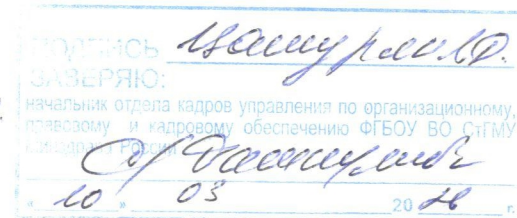 ПОДПИСЬ
ЗАВЕРЯЮ:
начальник отдела кадров управления по организационному,
правовому и кадровому обеспечению ФГБОУ ВО СтГМУ
Минздрава России
« 10 » 03 20 г.